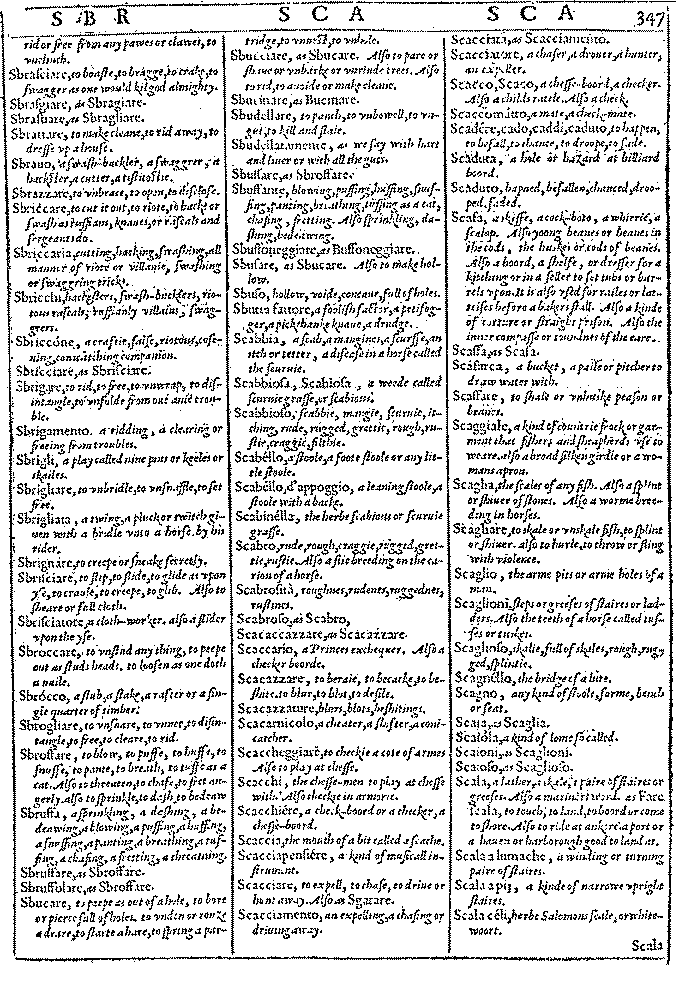 S B R
S C A
S C A
347
rid or free from any pawes or clawes, to
vnclutch.
Sbrasciare, to boaste, to bragge, to crake, to
swagger as one would kil god almighty.
Sbrasgiare, as Sbragiare.
as Sbragliare.
to make cleane, to rid away, to
dresse vp a house.
Sbrauo, a swash-buckler, a swaggrer, a
hackster, a cutter,
Sbrazzare, to vnbrace, to open, to disclose.
Sbriccare, to cut it out, to riote, to hack or
swash as ruffians, knaues, or rascals and
sergeants do.
Sbriccaria, cutting, hacking, swashing, all
manner of riote or villanie, swashing
or swaggring tricks.
Sbricchi, hacksters, swash-bucklers, rio-
tous rascals, ruffianly villains, swag-
grers.
Sbriccóne, a craftie, false, riotous, cose-
ning, connicatching companion.
Sbricciare, as Sbrisciare.
Sbrigare, to rid, to free, to vnwrap, to dis-
intangle, to vnfolde from out anie trou-
ble.
Sbrigamento, a ridding, a clearing or
freeing from troubles.
Sbrigli, a play called nine pins or keeles or
skailes.
Sbrigliare, to vnbridle, to vnsnaffle, to set
free.
Sbrigliata, a twing, a pluck or twitch gi-
uen with a bridle vnto a horse, by his
rider.
Sbrignare, to creepe or sneake secretly.
Sbrisciare, to slip, to slide, to glide as vpon
yse, to craule, to creepe, to glib. Also to
sheare or full cloth.
Sbrisciatore, a cloth-worker. also a slider
vpon the yse.
Sbroccare, to vnstud any thing, to peepe
out as studs heads. to loosen as one doth
a naile.
Sbrocco, a stub, a stake, a rafter or a sin-
gle quarter of timber.
Sbrogliare, to vnsnare, to vnnet, to disin-
tangle, to free, to cleare, to rid.
Sbroffare, to blow, to puffe, to huffe, to
snuffe, to pante, to breath, to tuffe as a
cat. Also to threaten, to chafe, to fret an-
gerly. also to sprinkle, to dash, to bedeaw
Sbruffa, a sprinkling, a dashing, a be-
deawing, a blowing, a puffing, a huffing,
a snuffing, a panting, a breathing, a tuf-
fing, a chafing, a fretting, a threatning.
Sbruffare, as Sbroffare.
Sbruffolare, as Sbroffare.
Sbucare, to peepe as out of a hole, to bore
or pierce full of holes. to vnden or rouze
a deare, to starte a hare, to spring a par-
tridge, to vnnest, to vnhole.
Sbucciare, as Sbucare. Also to pare or
shaue or vnbarke or vnrinde trees. Also
to rid, to auoide or make cleane.
Sbucinare, as Bucinare.
Sbudellare, to panch, to vnbowell, to vn-
gut, to kill and slaie.
Sbudellatamente, as we say with hart
and liuer or with all the guts.
Sbuffare, as Sbroffare.
Sbuffante, blowing, puffing, huffing, snuf-
fing, panting, breathing, tuffing as a cat,
chafing, fretting. Also sprinkling, da-
shing, bedeawing.
Sbuffoneggiare, as Buffoneggiare.
Sbusare, as Sbucare. Also to make hol-
low.
Sbuso, hollow, voide, concaue, full of holes.
a foolish factor, a pettifog-
ger, a pickthanke knaue, a drudge.
Scabbia, a scab, a mangines, a scurffe, an
itch or tetter, a disease in a horse called
the scuruie.
Scabbiosa, Scabiosa, a weede called
scuruiegrasse, or scabious.
Scabbioso, scabbie, mangie, scuruie, it-
ching, rude, rugged, grettie, rough, ru-
stie, craggie, filthie.
Scabéllo, a stoole, a foote stoole or any lit-
tle stoole.
Scabéllo, d'appoggio, a leaning stoole, a
stoole with a backe.
Scabinélla, the herbe scabious or scuruie
grasse.
Scabro, rude, rough, craggie, rugged, gret-
tie, rustie. Also a flie breeding on the ca-
rion of a horse.
Scabrosità, roughnes, rudenes, ruggednes,
rustines.
Scabroso, as Scabro,
Scacaccazzare, as Scacazzare.
Scaccario, a Princes exchequer. Also a
checker boorde.
Scacazzare, to beraie, to becacke, to be-
shite. to blur, to blot, to defile.
Scacazzature, blurs, blots, beshitings.
Scacarnicolo, a cheater, a shifter, a coni-
catcher.
Scaccheggiare, to checkie a cote of armes
Also to play at chesse.
Scacchi, the chesse-men to play at chesse
with. Also checkie in armorie.
Scacchiére, a check-boord or a checker, a
chesse-boord.
Scaccia, the mouth of a bit called a scache.
Scacciapensiére, a kind of musicall in-
strument.
Scacciare, to expell, to chase, to driue or
hunt away. Also as Sgarare.
Scacciamento, an expelling, a chasing or
driuing away.
Scacciata, as Scacciamento.
Scacciatore, a chaser, a driuer, a hunter,
an expeller.
Scacco, Scaco, a chesse-boord, a checker.
Also a childs rattle. Also a check.
Scaccomatto, a mate, a check-mate.
Scadére, cado, caddi, caduto, to happen,
to befall, to chance, to droope, to fade.
Scaduta, a hole at hazard at billiard
boord.
Scaduto, hapned, befallen, chanced, droo-
ped, faded.
Scafa, a skiffe, a cock-bote, a whirrie, a
scalop. Also young beanes or beanes in
the cods, the huskes or cods of beanes.
Also a boord, a shelfe, or dresser for a
kitching or in a seller to set tubs or bar-
rels vpon. It is also vsed for railes or lat-
tises before a bakers stall. Also a kinde
of torture or straight prison. Also the
inner compasse or roundnes of the eare.
Scaffa, as Scafa.
a bucket, a paile or pitcher to
draw water with.
Scaffare, to shale or vnhuske peason or
beanes.
Scaggiale, a kind of countrie frock or gar-
ment that fishers and shepherds vse to
weare. also a broad silken girdle or a wo-
mans apron.
Scaglia, the scales of any fish. Also a splint
or shiuer of stones. Also a worme bree-
ding in horses.
Scagliare, to skale or vnskale fish, to splint
or shiuer. also to hurle, to throw or fling
with violence.
Scaglio, the arme pits or arme holes of a
man.
Scaglioni, steps or greeses of staires or lad-
ders. Also the teeth of a horse called tus-
kes or tushes.
Scaglioso, skalie, full of skales, rough, rug-
ged, splintie.
Scagnéllo, the bridge of a lute.
Scagno, any kind of stoole, forme, bench
or seat.
Scaia, as Scaglia.
Scaiola, a kind of lome so called.
Scaioni, as Scaglioni.
Scaioso, as Scaglioso.
Scala, a lather, a skale, a paire of staires or
greeses. Also a mariners word. as Fare
scala, to touch, to land, to boord or come
to shore. Also to ride at anker. a port or
a hauen or harborough good to land at.
Scala a lumache, a winding or turning
paire of staires.
Scala a piș, a kinde of narrow vpright
staires.
Scala céli, herbe Salomons seale, or white-
woort.
Scala